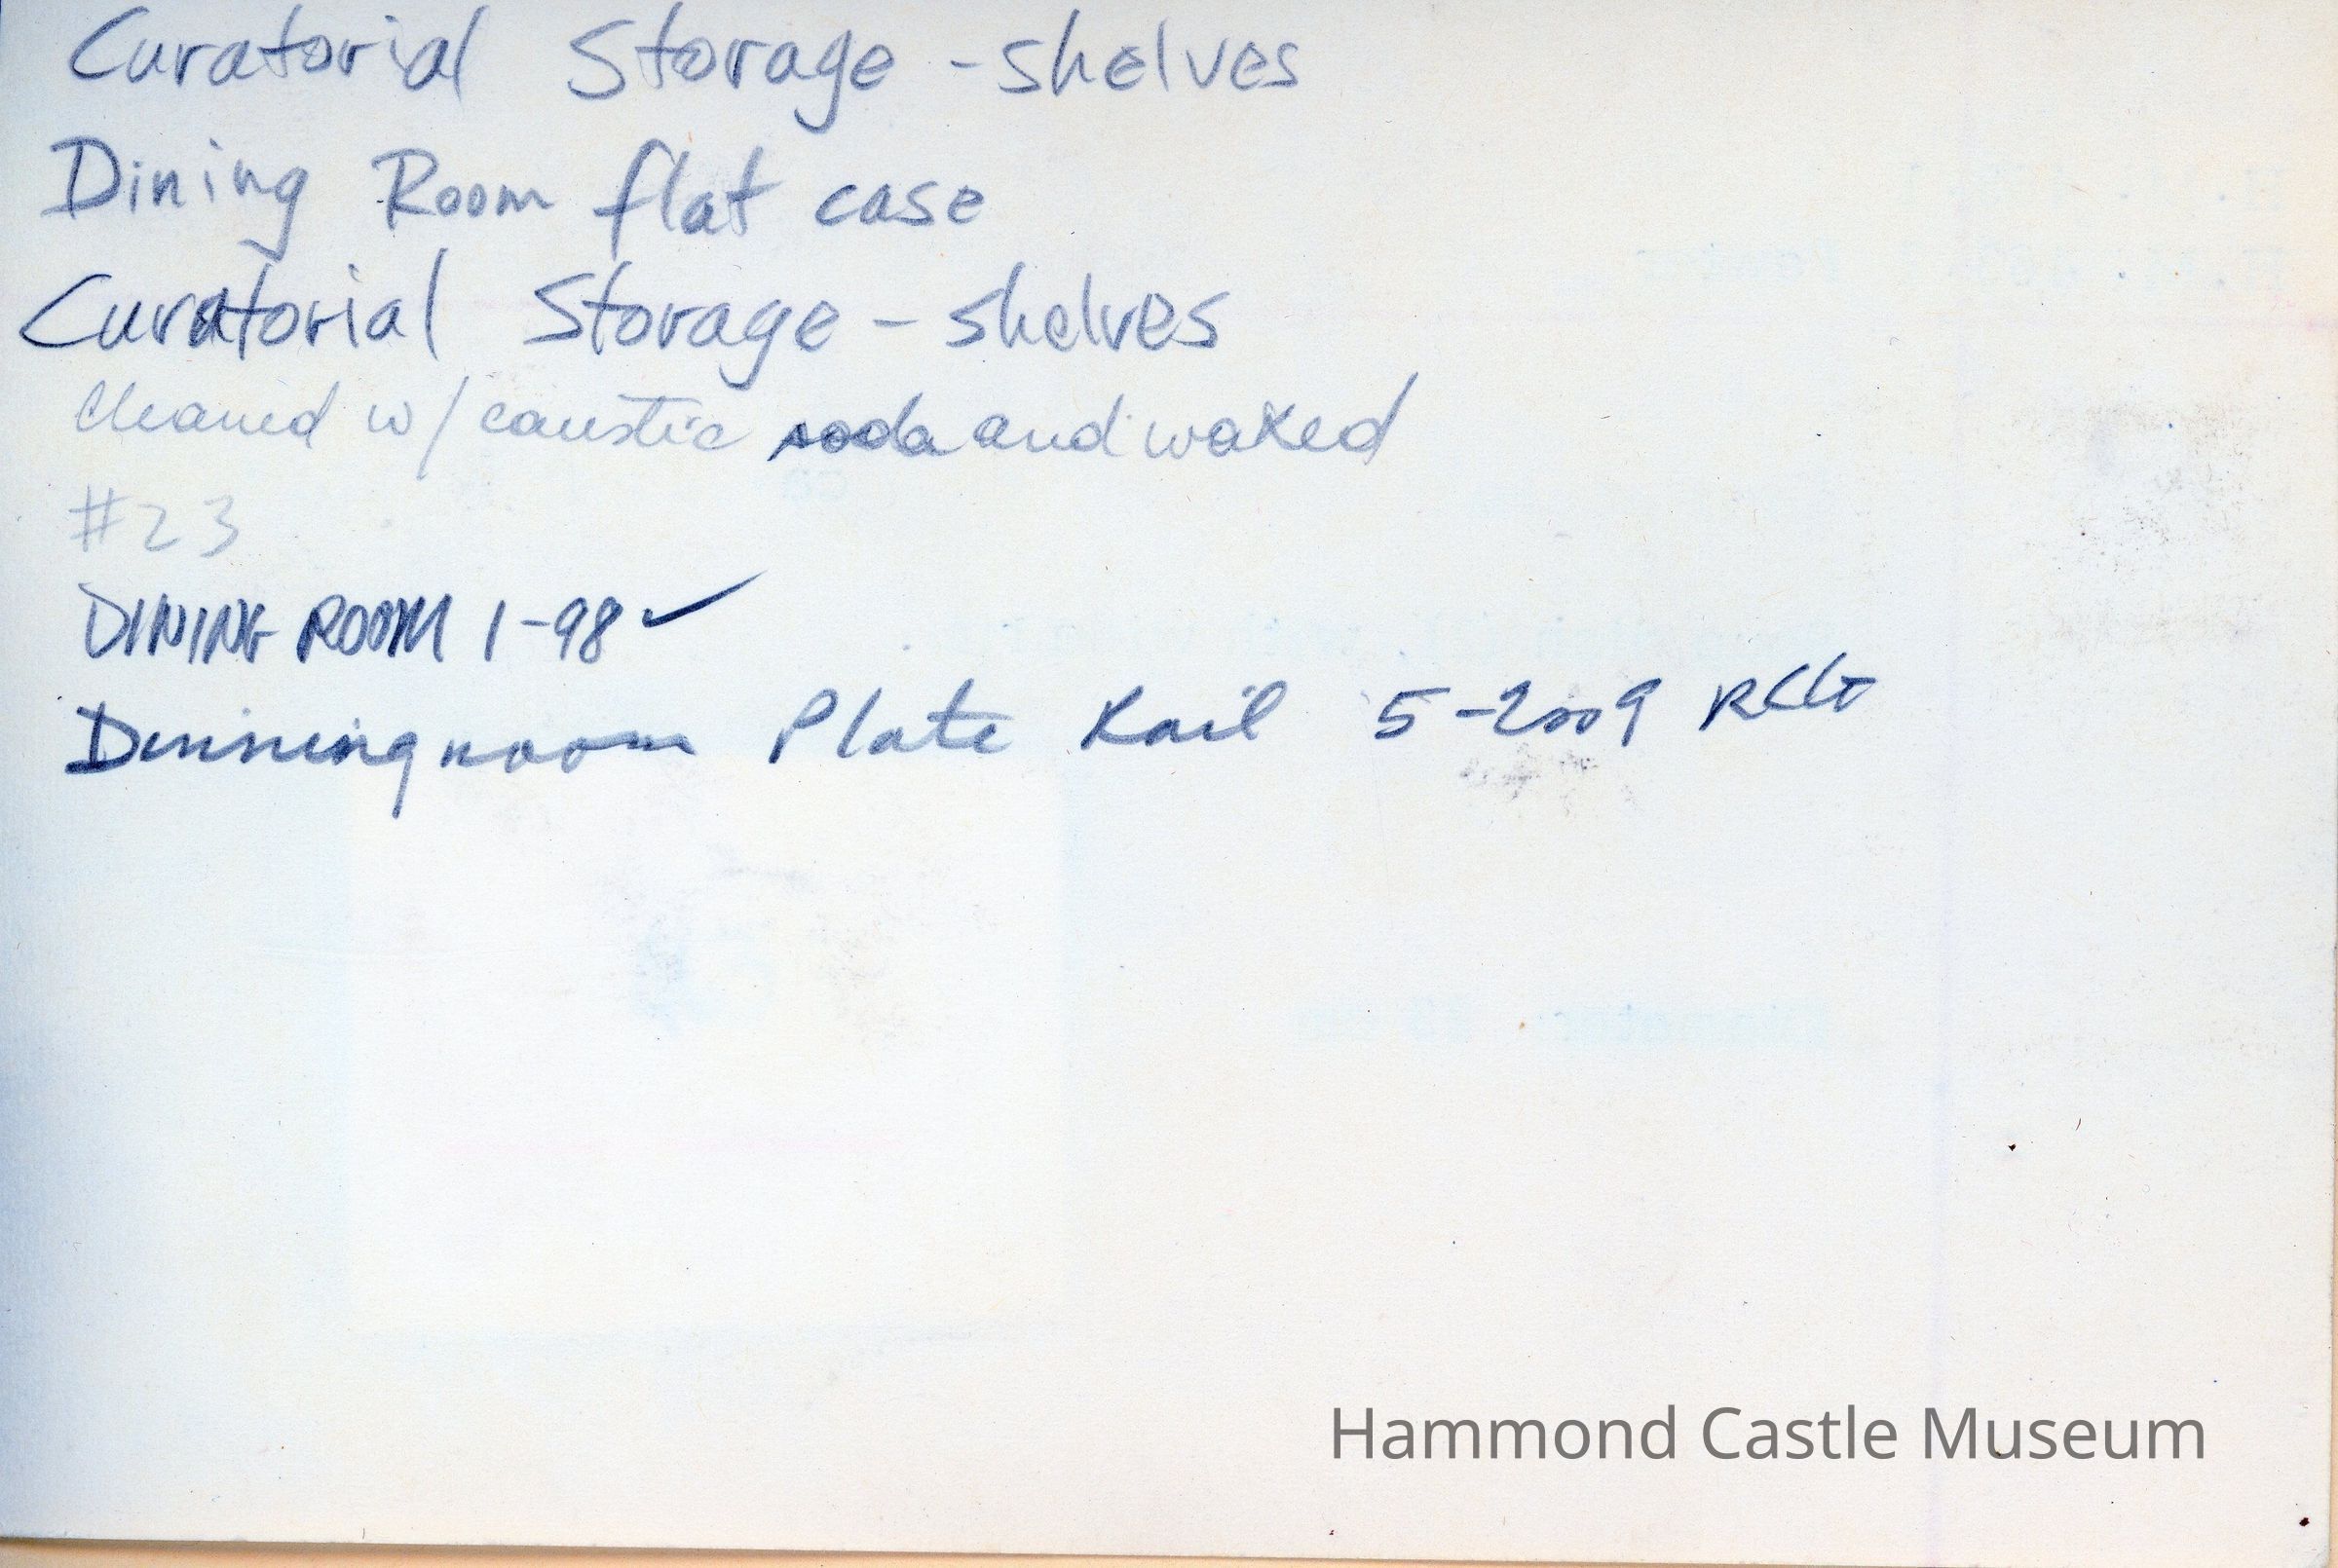 Curatorial Storage - shelves
Dining Room flat case
Curatorial Storage - shelves
Cleaned w/ caustic soda and waxed
#23
DINING ROOM 1-98 ✓
Dinningroom Plate Rail 5-2009
Hammond Castle Museum